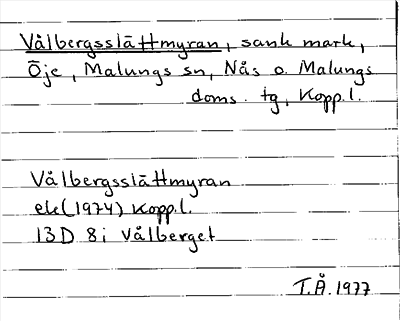 Vålbergsslättmyran, sank mark,
Öje, Malungs sn, Nås o. Malungs
doms. tg, Kopp.l.
Vålbergsslättmyran
ek(1974) Kopp.l.
13D 8i Vålberget
T.Å. 1977